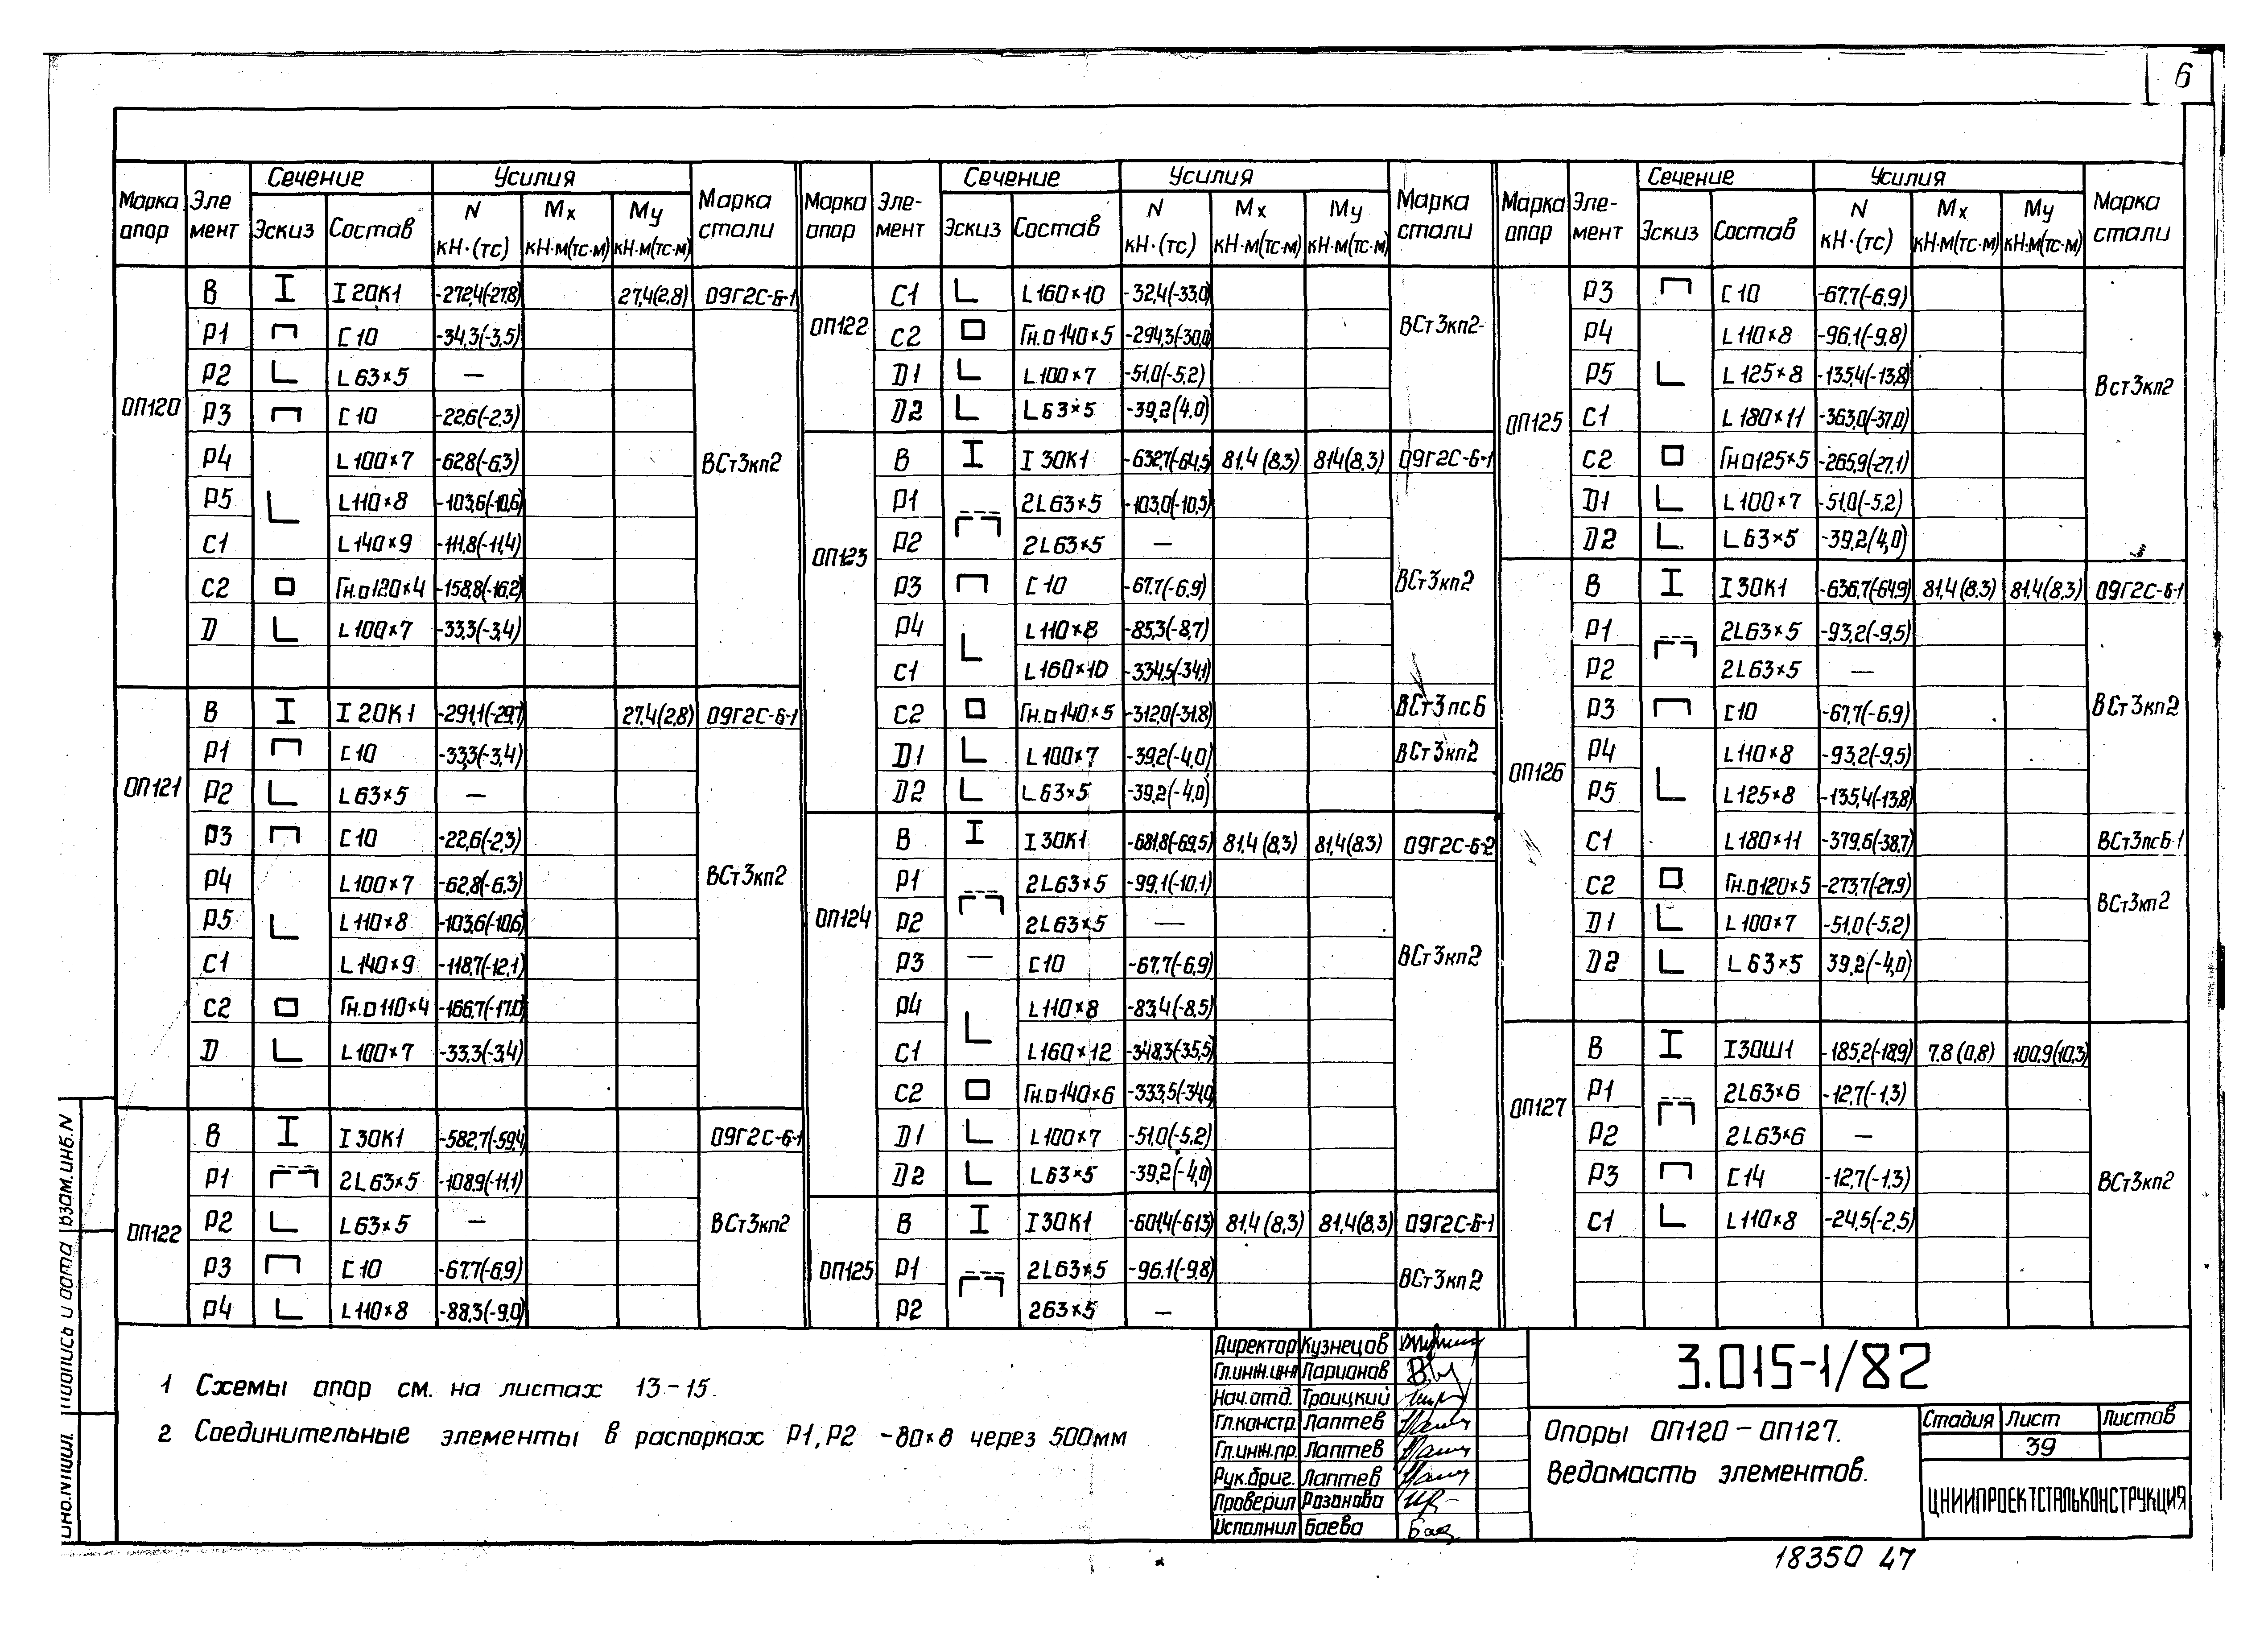 6
Марка опор | Элемент | Сечение | Усилия | Марка стали
Эскиз | Состав | N кН·(тс) | Mx кН·м(тс·м) | My кН·м(тс·м)
ОП120
В I 20К1 -272,4(-27,8) 27,4(2,8) 09Г2С-6-1
Р1 [ 10 -34,3(-3,5)
Р2 L 63×5 —
Р3 [ 10 -22,6(-2,3)
Р4 L 100×7 -62,8(-6,3) ВСт3кп2
Р5 L 110×8 -103,6(-10,6)
С1 L 140×9 -111,8(-11,4)
С2 Гн.□120×4 -158,8(-16,2)
D L 100×7 -33,3(-3,4)
ОП121
В I 20К1 -291,1(-29,7) 27,4(2,8) 09Г2С-6-1
Р1 [ 10 -33,3(-3,4)
Р2 L 63×5 —
Р3 [ 10 -22,6(-2,3)
Р4 L 100×7 -62,8(-6,3) ВСт3кп2
Р5 L 110×8 -103,6(-10,6)
С1 L 140×9 -118,7(-12,1)
С2 Гн.□110×4 -166,7(-17,0)
D L 100×7 -33,3(-3,4)
ОП122
В I 30К1 -582,7(-59,4) 09Г2С-6-1
Р1 2L63×5 -108,9(-11,1)
Р2 L 63×5 — ВСт3кп2
Р3 [ 10 -67,7(-6,9)
Р4 L 110×8 -88,3(-9,0)
Марка опор | Эле-мент | Сечение | Усилия | Марка стали
Эскиз | Состав | N кН·(тс) | Mx кН·м(тс·м) | My кН·м(тс·м)
ОП122
С1 L 160×10 -32,4(-33,0)
С2 Гн.□140×5 -294,3(-30,0) ВСт3кп2
D1 L 100×7 -51,0(-5,2)
D2 L 63×5 -39,2(4,0)
ОП123
В I 30К1 -632,7(-64,5) 81,4(8,3) 81,4(8,3) 09Г2С-6-1
Р1 2L63×5 -103,0(-10,5)
Р2 2L63×5 —
Р3 [ 10 -67,7(-6,9) ВСт3кп2
Р4 L 110×8 -85,3(-8,7)
С1 L 160×10 -334,5(-34,1)
С2 Гн.□140×5 -312,0(-31,8) ВСт3пс6
D1 L 100×7 -39,2(-4,0) ВСт3кп2
D2 L 63×5 -39,2(-4,0)
ОП124
В I 30К1 -681,8(-69,5) 81,4(8,3) 81,4(8,3) 09Г2С-6-2
Р1 2L63×5 -99,1(-10,1)
Р2 2L63×5 —
Р3 — [ 10 -67,7(-6,9) ВСт3кп2
Р4 L 110×8 -83,4(-8,5)
С1 L 160×12 -348,3(-35,5)
С2 Гн.□140×6 -333,5(-34,0)
D1 L 100×7 -51,0(-5,2)
D2 L 63×5 -39,2(-4,0)
ОП125
В I 30К1 -601,4(-61,3) 81,4(8,3) 81,4(8,3) 09Г2С-6-1
Р1 2L63×5 -96,1(-9,8) ВСт3кп2
Р2 263×5 —
Марка опор | Эле-мент | Сечение | Усилия | Марка стали
Эскиз | Состав | N кН·(тс) | Mx кН·м(тс·м) | My кН·м(тс·м)
ОП125
Р3 [ 10 -67,7(-6,9)
Р4 L 110×8 -96,1(-9,8)
Р5 L 125×8 -135,4(-13,8) Вст3кп2
С1 L 180×11 -363,0(-37,0)
С2 Гн□125×5 -265,9(-27,1)
D1 L 100×7 -51,0(-5,2)
D2 L 63×5 -39,2(4,0)
ОП126
В I 30К1 -636,7(-64,9) 81,4(8,3) 81,4(8,3) 09Г2С-6-1
Р1 2L63×5 -93,2(-9,5)
Р2 2L63×5 —
Р3 [ 10 -67,7(-6,9) ВСт3кп2
Р4 L 110×8 -93,2(-9,5)
Р5 L 125×8 -135,4(-13,8)
С1 L 180×11 -379,6(-38,7) ВСт3пс6-1
С2 Гн.□120×5 -273,7(-27,9) ВСт3кп2
D1 L 100×7 -51,0(-5,2)
D2 L 63×5 39,2(-4,0)
ОП127
В I 30Ш1 -185,2(-18,9) 7,8(0,8) 100,9(10,3)
Р1 2L63×6 -12,7(-1,3)
Р2 2L63×6 —
Р3 [ 14 -12,7(-1,3) ВСт3кп2
С1 L 110×8 -24,5(-2,5)
1 Схемы опор см. на листах 13-15.
2 Соединительные элементы в распорках Р1, Р2 -80×8 через 500мм
Директор Кузнецов
Гл.инж.ин-та Ларионов
Нач.отд. Троицкий
Гл.констр. Лаптев
Гл.инж.пр. Лаптев
Рук.бриг. Лаптев
Проверил Розанова
Исполнил Баева
3.015-1/82
Опоры ОП120-ОП127.
Ведомость элементов.
Стадия Лист Листов
39
ЦНИИПРОЕКТСТАЛЬКОНСТРУКЦИЯ
18350 47
Инв.N подл. Подпись и дата Взам.инв.N